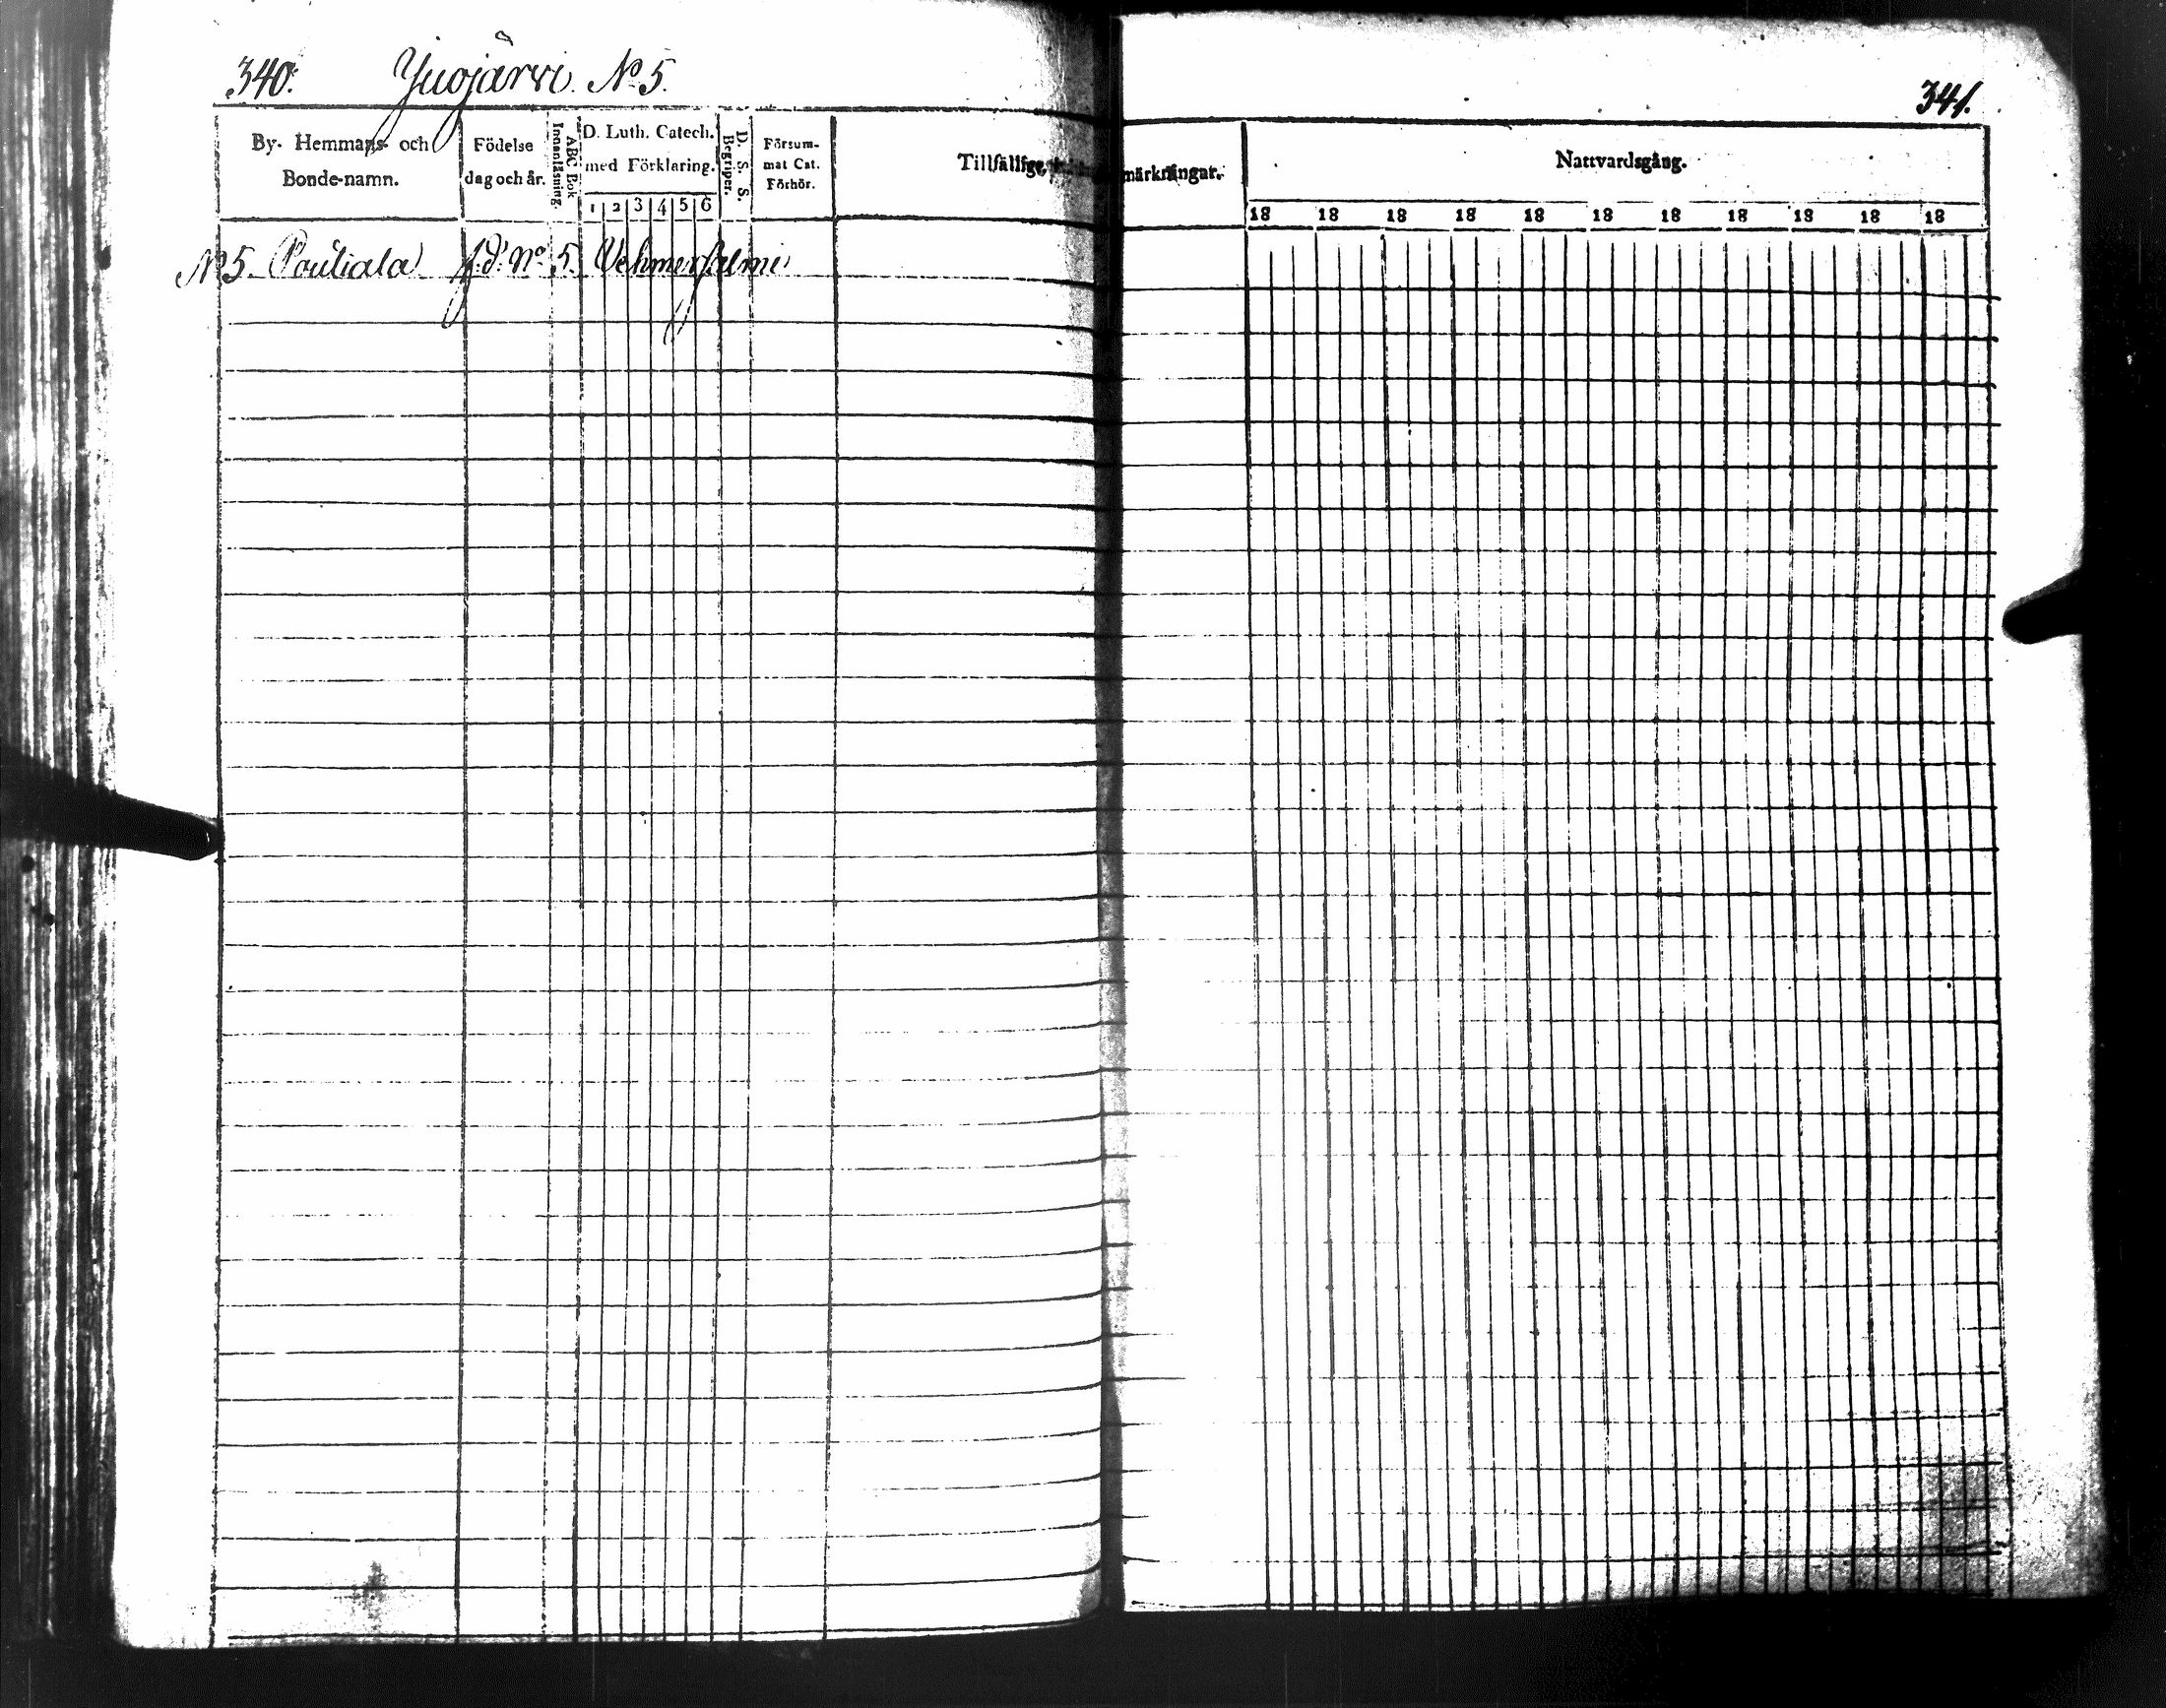 340. Juojärvi No 5.
341.
By- Hemmans- och Bonde-namn.
Födelse dag och år.
ABC Bok Innanläsning.
D. Luth. Catech. med Förklaring.
1 2 3 4 5 6
D. S. S. Begriper.
Försum-
mat Cat.
Förhör.
Tillfällige märkningar.
Nattvardsgång.
18 18 18 18 18 18 18 18 18 18 18
No 5. Pouliala f.d. No 5. Vehmersalmi